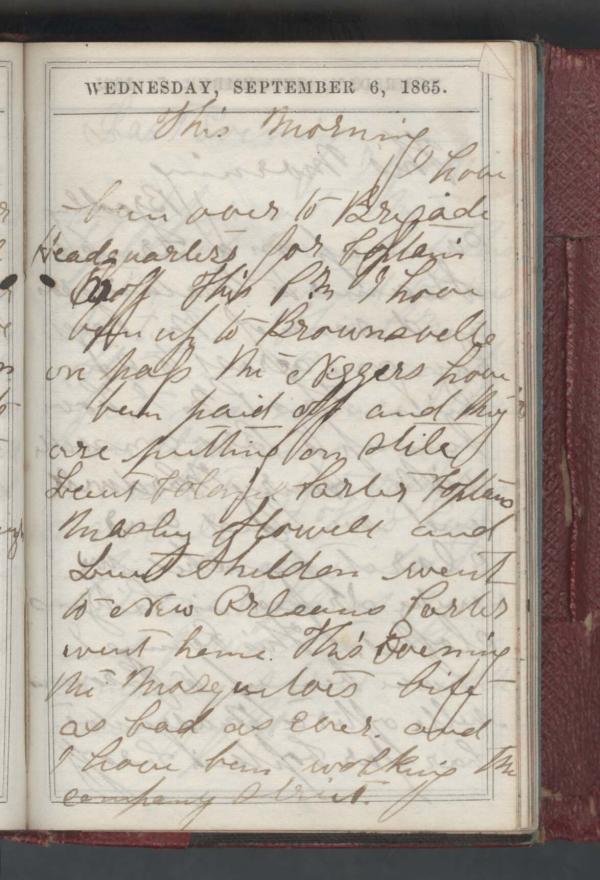 WEDNESDAY, SEPTEMBER 6, 1865.
This Morning
I have
ben over to Brigade
Headquarters for Captain
This P.M I have
ben up to Brownsvelle
on pass the Niggers have
ben paid off and they
are putting on stile
Leiut Colonel Carter Captains
Mosley Howell and
Leiut Sheldon went
to New Orleans Carter
went home. This Evening
the Mosquitoes bite
as bad as Ever. and
I have ben walking the
company street.